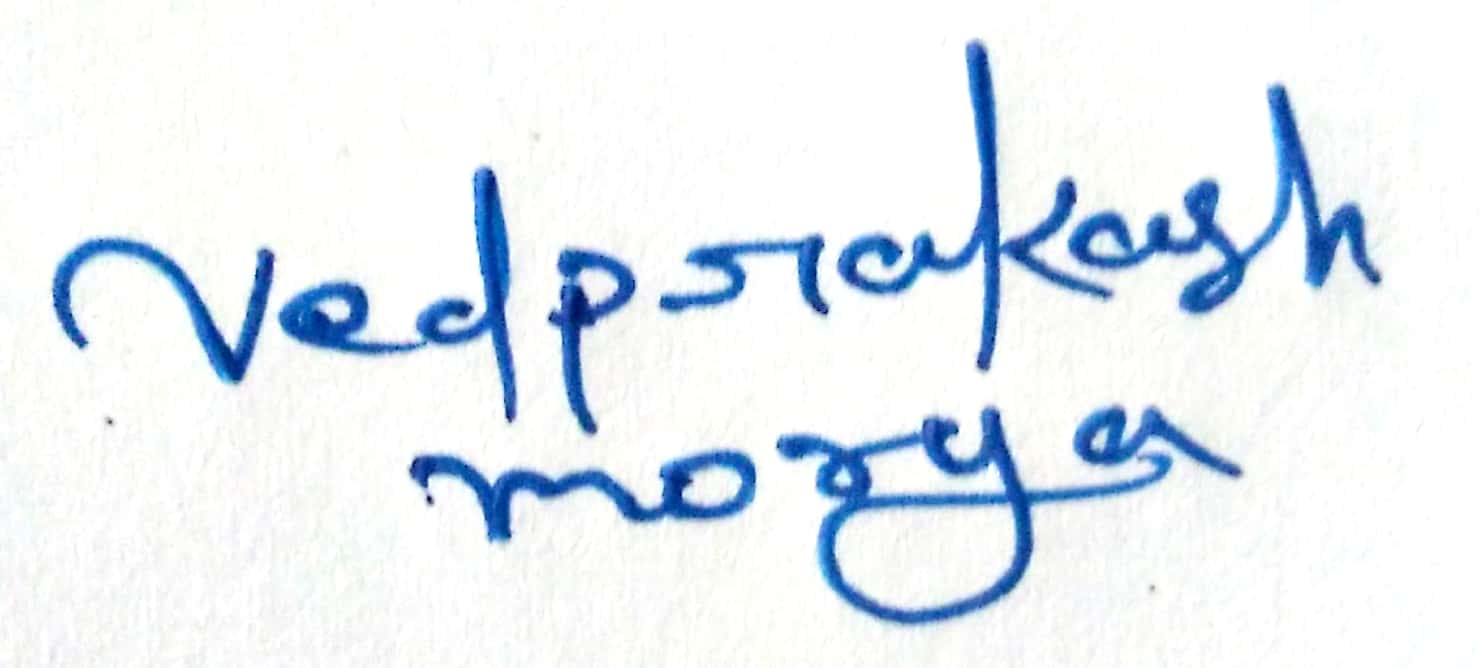 Vedprakash
morya